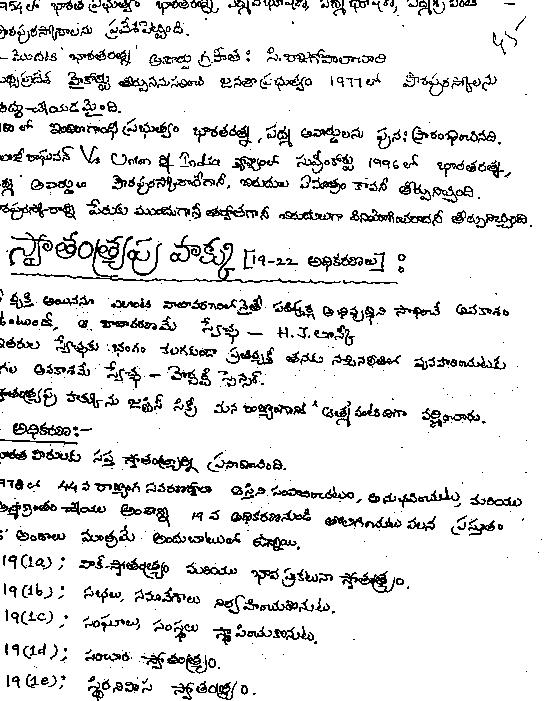 1954లో భారత ప్రభుత్వం భారతరత్న, పద్మవిభూషణ్, పద్మభూషణ్, పద్మశ్రీ వంటి
పౌరపురస్కారాలను ప్రవేశపెట్టింది.
45
- మొదట భారతరత్న అవార్డు గ్రహీత: సి.రాజగోపాలాచారి
మధ్యప్రదేశ్ హైకోర్టు తీర్పుననుసరించి జనతా ప్రభుత్వం 1977లో పౌరపురస్కాలను
రద్దు చేయడమైంది.
లో ఇందిరాగాంధీ ప్రభుత్వం భారతరత్న, పద్మ అవార్డులను పునః ప్రారంభించినది.
బాలాజీ రాఘవన్ Vs Union of India వ్యాజ్యంలో సుప్రీంకోర్టు 1996లో భారతరత్న,
పద్మ అవార్డులు పౌరపురస్కారాలేగానీ, బిరుదులు ఏమాత్రం కావని తీర్పునిచ్చింది.
పౌరపురస్కారాన్ని పేరుకు ముందుగానీ తర్వాతగానీ బిరుదులుగా వినియోగించరాదని తీర్పునిచ్చింది.
స్వాతంత్ర్యపు హక్కు [19-22 అధికరణలు] :
వ్యక్తి అయినను ఎలాంటి వాతావరణంలోనైతే పరిపూర్ణ అభివృద్ధిని సాధించే అవకాశం
ఉంటుందో, ఆ వాతావరణమే స్వేచ్ఛ - H.J.లాస్కీ
ఇతరుల స్వేచ్ఛకు భంగం కలుగకుండా ప్రతివ్యక్తి తనకు నచ్చినరీతిలో వ్యవహరించుటకు
గల అవకాశమే స్వేచ్ఛ - హెర్బర్ట్ స్పెన్సర్.
స్వాతంత్ర్యపు హక్కును జస్టిస్ సిక్రీ మన రాజ్యాంగానికి 'ఆత్మ' వంటిదిగా వర్ణించారు.
అధికరణ:-
భారత పౌరులకు సప్త స్వాతంత్ర్యాన్ని ప్రసాదించింది.
1978లో 44వ రాజ్యాంగ సవరణద్వారా ఆస్తిని సంపాదించటం, అనుభవించుట, మరియు
చేయు అంశాన్ని 19వ అధికరణనుండి తొలగించుట వలన ప్రస్తుతం
6 అంశాలు మాత్రమే అందుబాటులో ఉన్నాయి.
19(1a) ; వాక్-స్వాతంత్ర్యం మరియు భావ ప్రకటనా స్వాతంత్ర్యం.
19(1b) ; సభలు, సమావేశాలు నిర్వహించుకొనుట.
19(1c) ; సంఘాలు, సంస్థలు స్థాపించుకొనుట.
19(1d) ; సంచార స్వాతంత్ర్యం.
19(1e) ; స్థిరనివాస స్వాతంత్ర్యం.